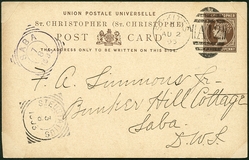 UNION POSTALE UNIVERSELLE
ST. CHRISTOPHER (ST. CHRISTOPHE)
POST CARD
THE ADDRESS ONLY TO BE WRITTEN ON THIS SIDE
SABA
AU 2
A
T. A. Simmons Jr
Bunker Hill Cottage
Saba.
D.W.I.